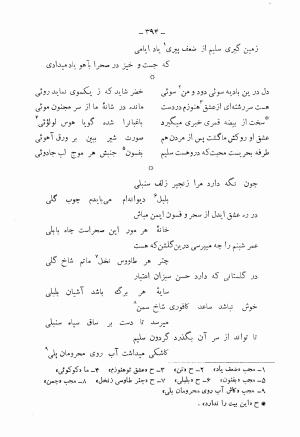 - ۳۹۴ -
زمین گیری سلیم از ضعف پیری۱ یاد ایامی
که جست و خیز در صحرا بآهو یاد میدادی
دل در این بادیه سوئی دود و من۲ سوئی
خضر شاید که ز یکسوی نماید روئی
هست سر رشته‌ای از عشق۳ هنوزم در دست
مانده در شانهٔ ما از سر مجنون موئی
سخت از بیضه قمری خبری میگیرد
باغبان را شده گویا هوس لولوئی۴
عشق او روکش ما گشت پس از مردن هم
صورت شیر ببین بر ورق آهوئی
طرفه بحریست محبت که در وهست سلیم
بفسون۵ جنبش هر موج لب جادوئی
چون نگه دارد مرا زنجیر زلف سنبلی
بلبل۶ دیوانه‌ام می‌بایدم چوب گلی
در ره عشق ایدل از سحر و فسون ایمن مباش
خانهٔ هر مور این صحراست چاه بابلی
عمر شبنم را چه میپرسی درین گلشن که هست
چتر هر طاووس نخل۷ ماتم شاخ گلی
در گلستانی که دارد حسن سبزان اعتبار
سایهٔ هر برگه باشد آشیان بلبلی
خوش نباشد ساعد کافوری شاخ سمن۸
میرسد تا دست بر ساق سیاه سنبلی
تا تواند از سر آن بگذرد گردون سلیم
کاشکی میداشت آب روی محرومان پلی۹
۱- مجب «ضعف یاد» ۲- ح «تن» ۳- ح «عشق تو هنوزم» ۴- ما «کوکوئی»
۵- مجب «بفتون» ۶- ح «بلبلی» ۷- ح «چتر طاوس نخل» ۸- مجب «چمن»
۹- مجب «کاش آب روی محرومان پلی»
* ح «این بیت را ندارد» .